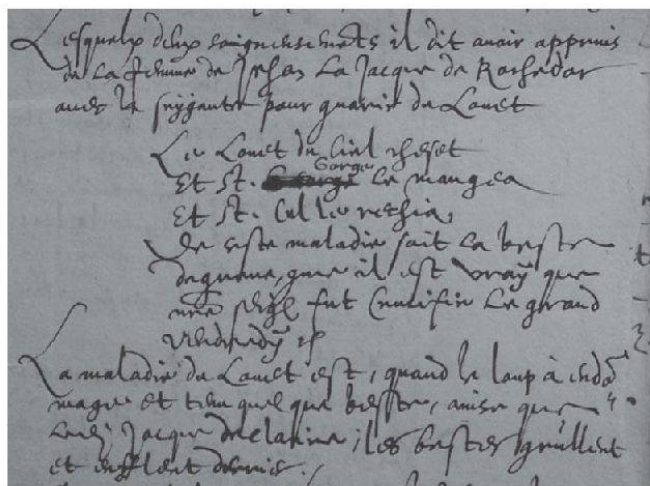 Lesquelx deux enseignements il dit avoir apprins
de la femme de Jehan La Jacque de Rochedor
avec le suyvante pour guarir de Louet
Le Louet du Ciel cheset
Gorge
Et St. le mangea
Et St.
de ceste maladie soit la beste
que il est vraÿ que
fut Crucifie le grand
vendredÿ
La maladie de Louet est, quand le loup à endo
mage et quelque beste, ainse que
Jacque declaire, les bestes
et enflent